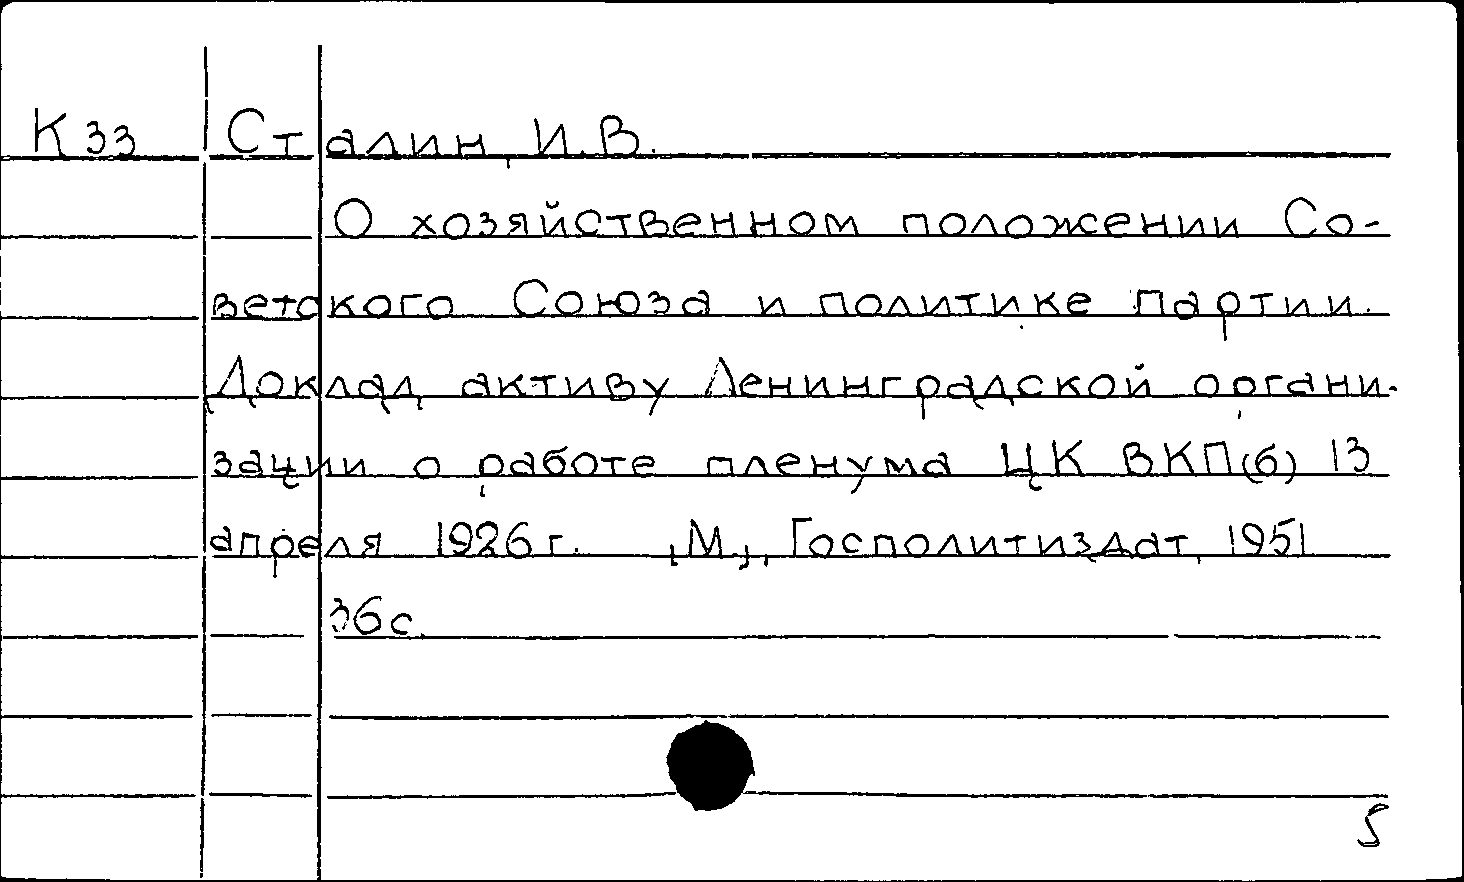 К 33 Сталин, И.В.
О хозяйственном положении Со-
ветского Союза и политике партии.
Доклад активу Ленинградской органи-
зации о работе пленума ЦК ВКП(б) 13
апреля 1926 г. [М.], Госполитиздат, 1951
36 с.
5